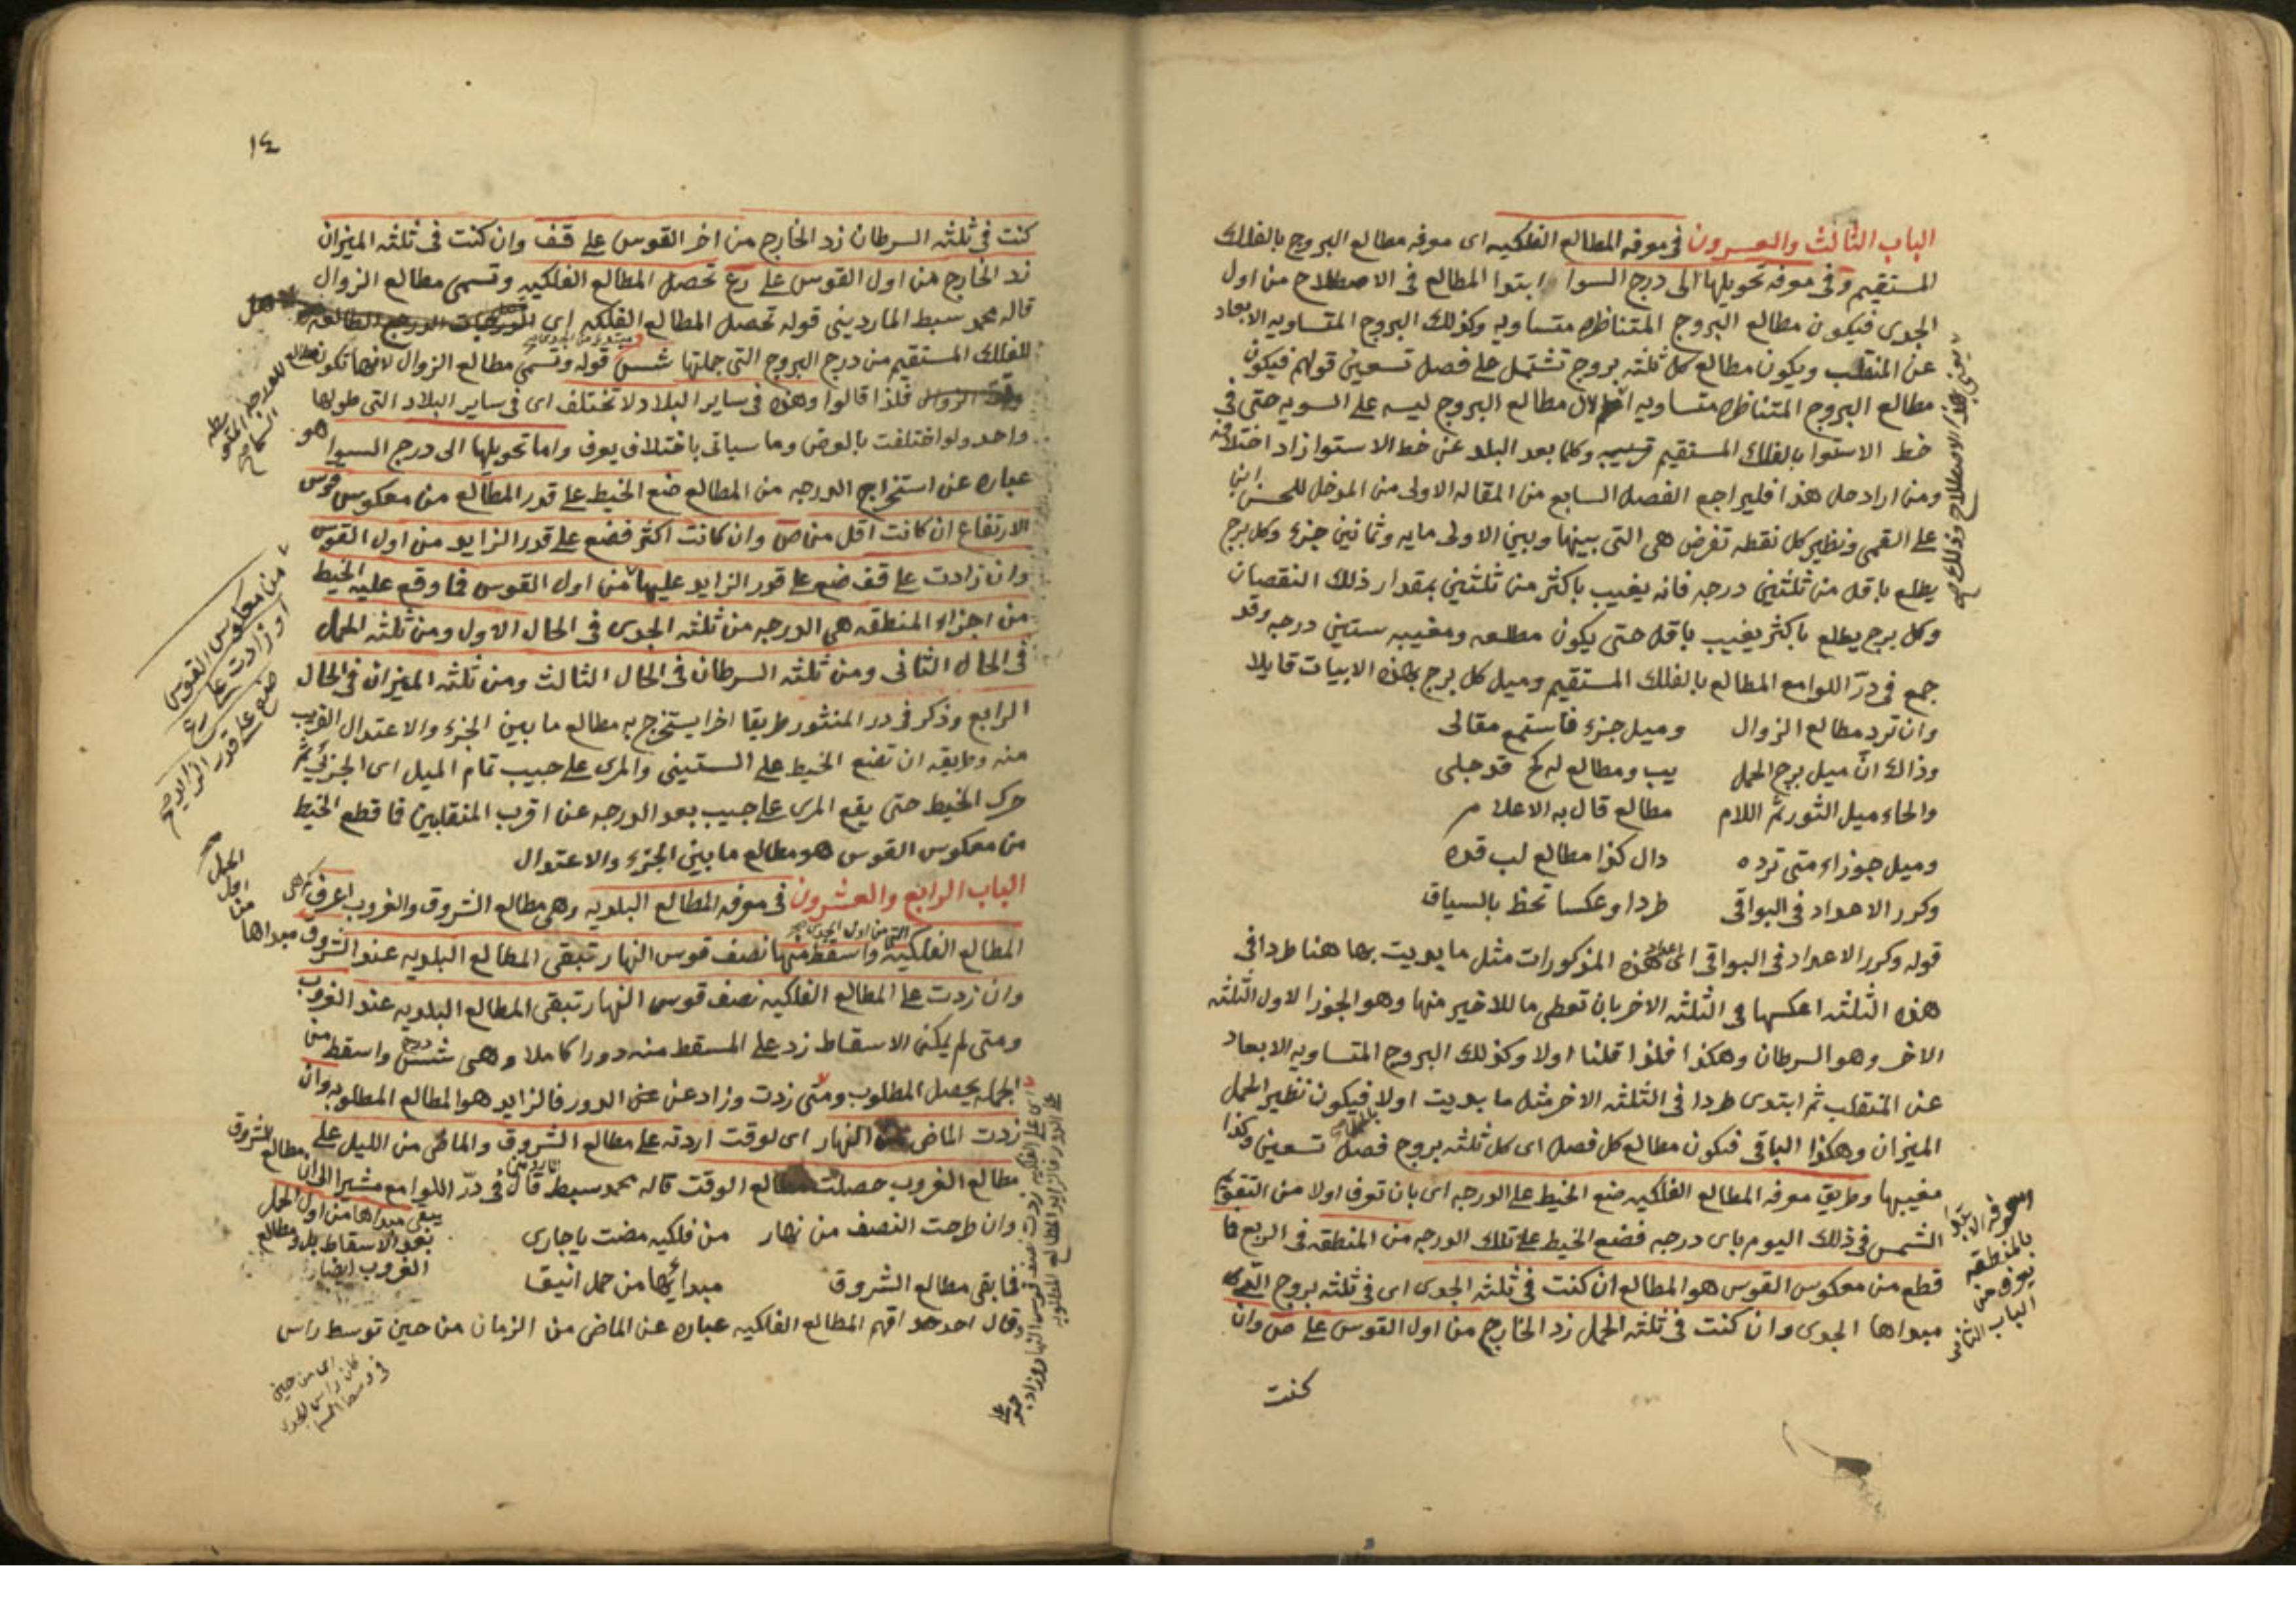 الباب الثالث والعشرون في معرفه المطالع الفلكيه اى معرفه مطالع البروج بالفلك
المستقيم وفى معرفه تحويلها الى درج السوا ابتدوا المطالع فى الاصطلاح من اول
الجدى فيكون مطالع البروج المتناظره متساويه وكذلك البروج المتساويه الابعاد
عن المنقلب ويكون مطالع كل ثلثه بروج تشتمل على فصل تسعين قولهم فيكون
مطالع البروج المتناظره متساويه لان مطالع البروج ليسه على السويه حتى فى
خط الاستوا بالفلك المستقيم وكلما بعد البلد عن خط الاستوا زاد اختلافه
ومن اراد حل هذا فليراجع الفصل السابع من المقاله الاولى من المدخل للحسن ابن
على القمى ونظير كل نقطه تفرض هى التى بينها وبين الاولى مايه وثمانين جزء وكل برج
يطلع باقل من ثلثين درجه فانه يغيب باكثر من ثلثين بمقدار ذلك النقصان
وكل برج يطلع باكثر يغيب باقل حتى يكون مطلعه ومغيبه ستين درجه وقد
جمع فى درّ اللوامع المطالع بالفلك المستقيم وميل كل برج بهذه الابيات قايلا
وان ترد مطالع الزوال وميل جزء فاستمع مقالى
وذاك انّ ميل برج الحمل يب ومطالع له كح قد جلى
والحاء ميل الثور ثمّ اللام مطالع قال به الاعلام
وميل جوزاء متى ترده دال كذا مطالع لب قده
وكرر الاعداد فى البواقى طردا وعكسا تحظ بالسياق
قوله وكرر الاعداد فى البواقى اى اعداد هذه المذكورات مثل ما بديت بها هنا طردا فى
هذه الثلثه اعكسها فى الثلثه الاخر بان تعطى ما للاخير منها وهو الجوزا لاول الثلثه
الاخر وهو السرطان وهكذا فلذا قلنا اولا وكذلك البروج المتساويه الابعاد
عن المنقلب ثم ابتدى طردا فى الثلثه الاخر مثل ما بديت اولا فيكون نظير الحمل
الميزان وهكذا الباقى فيكون مطالع كل فصل اى كل ثلثه بروج فصل تسعين وكذا
مغيبها وطريق معرفه المطالع الفلكيه ضع الخيط على الدرجه اى بان تعرف اولا من التقويم
الشمس فى ذلك اليوم باى درجه فضع الخيط على تلك الدرجه من المنطقه فى الربع فما
قطع من معكوس القوس هو المطالع ان كنت فى ثلثه الجدى اى فى ثلثه بروج التى
مبداها الجدى وان كنت فى ثلثه الحمل زد الخارج من اول القوس على ص وان
كنت
معرفه الابتدا
بالمنطقه
يعرف من
الباب الثانى
١٤
كنت فى ثلثه السرطان زد الخارج من اخر القوس على قف وان كنت فى ثلثه الميزان
زد الخارج من اول القوس على رع تحصل المطالع الفلكيه وتسمى مطالع الزوال
قاله محمد سبط الماردينى قوله تحصل المطالع الفلكيه اى
للفلك المستقيم من درج البروج التى جملتها شس قوله وتسمى مطالع الزوال لانها تكون مطالع
وقت الزوال فلذا قالوا وهذه فى ساير البلاد لا تختلف اى فى ساير البلاد التى طولها
واحد ولو اختلفت بالعرض وما سياتى باختلاف يعرف واما تحويلها الى درج السوا هو
عباره عن استخراج الدرجه من المطالع ضع الخيط على قدر المطالع من معكوس قوس
الارتفاع ان كانت اقل من ص وان كانت اكثر فضع على قدر الزايد من اول القوس
وان زادت على قف ضع على قدر الزايد عليها من اول القوس فما وقع عليه الخيط
من اجزاء المنطقه هى الدرجه من ثلثه الجدى فى الحال الاول ومن ثلثه الحمل
فى الحال الثانى ومن ثلثه السرطان فى الحال الثالث ومن ثلثه الميزان فى الحال
الرابع وذكر فى در المنثور طريقا اخر يستخرج به مطالع ما بين الجزء والاعتدال القريب
منه وطريقه ان تضع الخيط على الستينى والمرى على جيب تمام الميل اى الجزئى ثمّ
حرك الخيط حتى يقع المرى على جيب بعد الدرجه عن اقرب المنقلبين فما قطع الخيط
من معكوس القوس هو مطالع ما بين الجزء والاعتدال
الباب الرابع والعشرون فى معرفه المطالع البلديه وهى مطالع الشروق والغروب اعرف
المطالع الفلكيه التى من اول الجدى واسقط منها نصف قوس النهار تبقى المطالع البلديه عند الشروق مبداها
وان زدت على المطالع الفلكيه نصف قوس النهار تبقى المطالع البلديه عند الغروب
ومتى لم يمكن الاسقاط زد على المسقط منه دورا كاملا وهى شس درج واسقط من
الجمله يحصل المطلوب ومتى زدت وزاد عن الدور فالزايد هو المطالع المطلوبه وان
زدت الماضى من النهار اى لوقت اردته على مطالع الشروق والماضى من الليل على
مطالع الغروب حصلت مطالع الوقت قاله محمد سبط الماردينى قال فى درّ اللوامع مشيرا الى ان مطالع الشروق
وان طرحت النصف من نهار من فلكيه مضت يا جارى
فما بقى مطالع الشروق مبدايها من حمل انيقا
وقال احدهم افهم المطالع الفلكيه عباره عن الماضى من الزمان من حين توسط راس
يبقى مبداها من اول الحمل
بعد الاسقاط بل ومطالع
الغروب ايضا
من معكوس القوس
او زادت على رع
ضع على قدر الزايد
الحمل
اقل
من
اى من حين
كان راس الجدى
فى وسط السما